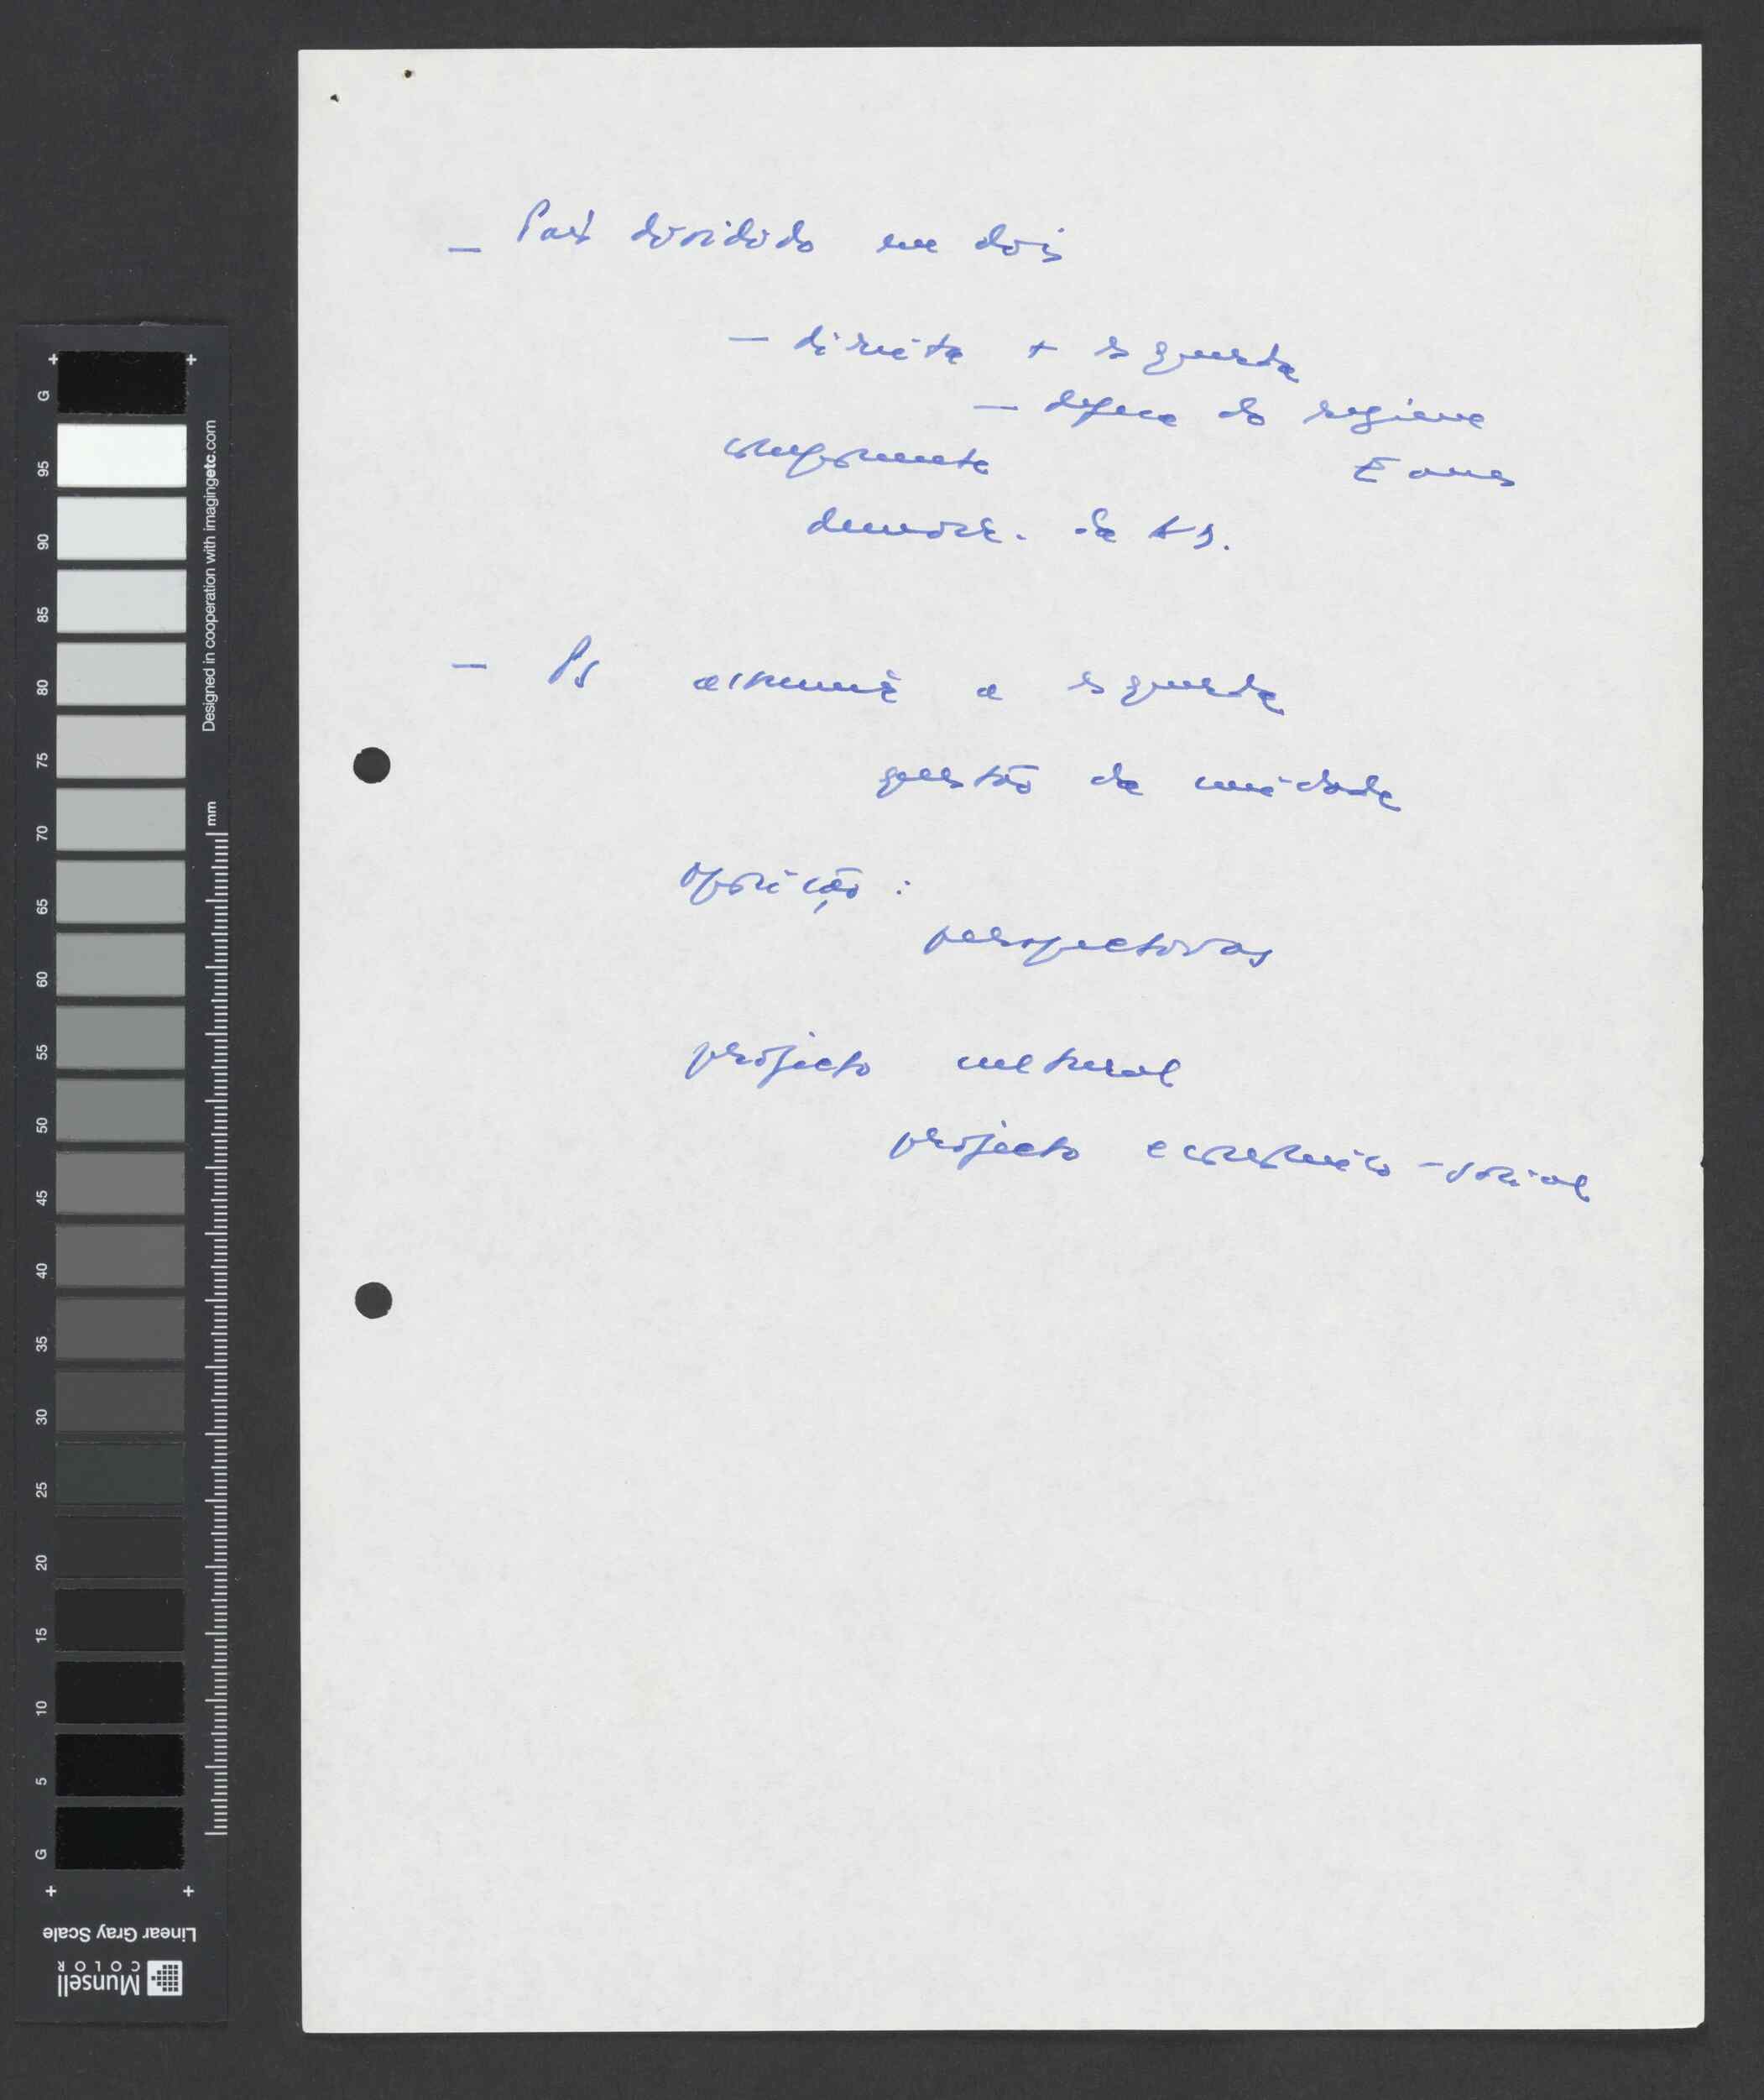 — País dividido em dois
— direita + esquerda
— defesa do regime
Eanes
democr. de
— PS assumir a esquerda
questão da unidade
oposição :
perspectivas
projecto cultural
projecto económico-social
G 95 90 85 80 75 70 65 60 55 50 45 40 35 30 25 20 15 10 5 G
Designed in cooperation with imagingetc.com
mm
Linear Gray Scale
Munsell
COLOR